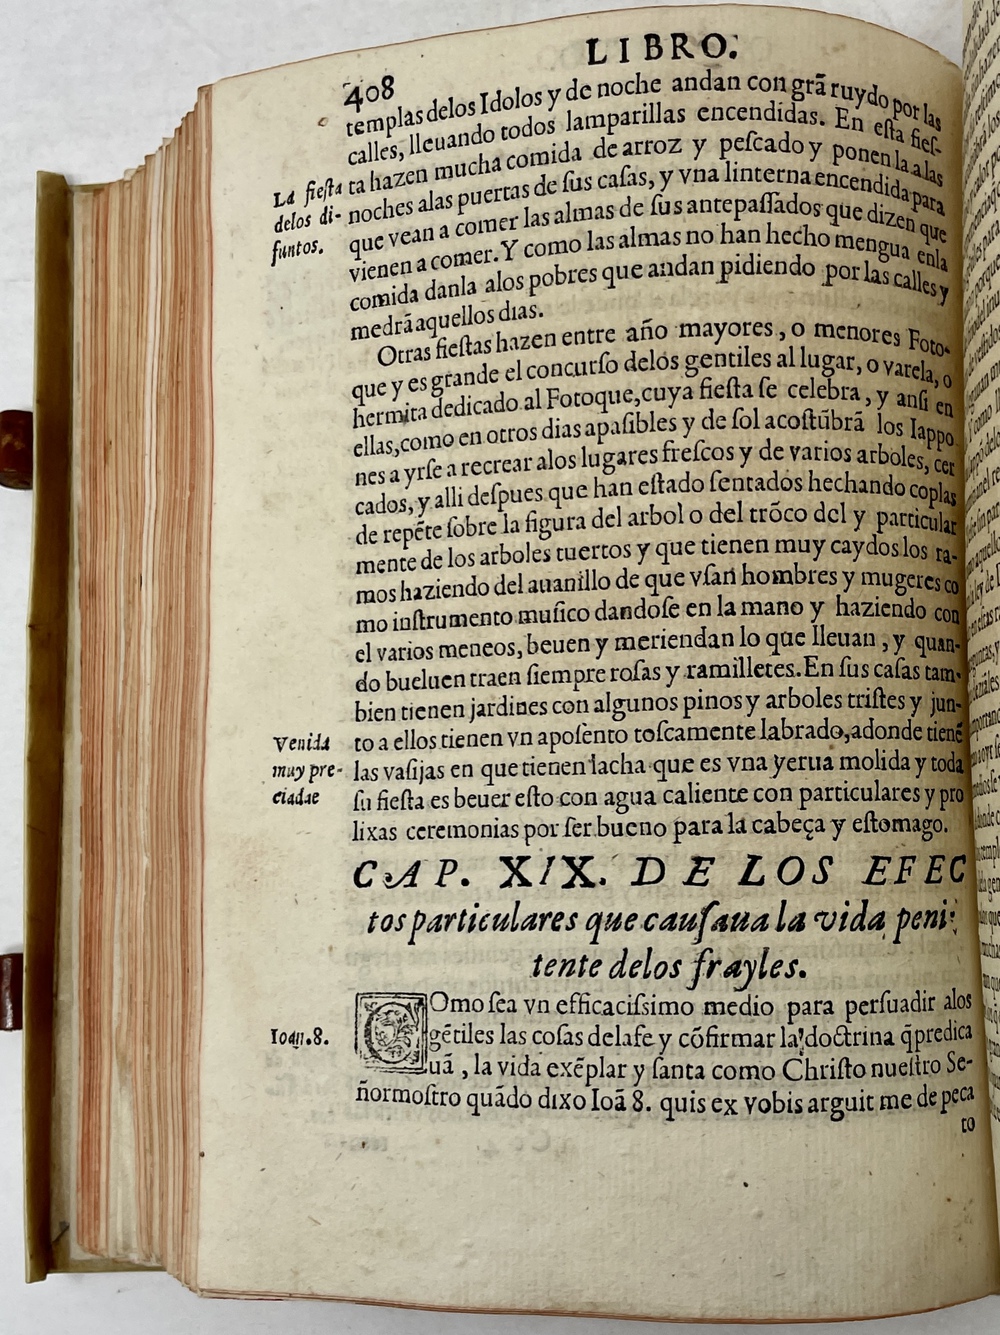 LIBRO.
408
templas delos Idolos y de noche andan con grã ruydo por las
calles, lleuando todos lamparillas encendidas. En eſta fieſ-
ta hazen mucha comida de arroz y peſcado y ponen la a las
noches alas puertas de ſus caſas, y vna linterna encendida para
que vean a comer las almas de ſus antepaſſados que dizen que
vienen a comer. Y como las almas no han hecho mengua enla
comida danla alos pobres que andan pidiendo por las calles y
medrã aquellos dias.
La fieſta
delos di-
funtos.
Otras fieſtas hazen entre año mayores, o menores Foto-
que y es grande el concurſo delos gentiles al lugar, o varela, o
hermita dedicado al Fotoque, cuya fieſta ſe celebra, y anſi en
ellas, como en otros dias apaſibles y de ſol acoſtũbrã los Iappo
nes a yrſe a recrear alos lugares freſcos y de varios arboles, cer
cados, y alli deſpues que han eſtado ſentados hechando coplas
de repẽte ſobre la figura del arbol o del trõco del y particular
mente de los arboles tuertos y que tienen muy caydos los ra-
mos haziendo del auanillo de que vſan hombres y mugeres co
mo inſtrumento muſico dandoſe en la mano y haziendo con
el varios meneos, beuen y meriendan lo que lleuan, y quan-
do bueluen traen ſiempre roſas y ramilletes. En ſus caſas tam-
bien tienen jardines con algunos pinos y arboles triſtes y jun-
to a ellos tienen vn apoſento toſcamente labrado, adonde tienẽ
las vaſijas en que tienen lacha que es vna yerua molida y toda
ſu fieſta es beuer eſto con agua caliente con particulares y pro
lixas ceremonias por ſer bueno para la cabeça y eſtomago.
Venida
muy pre-
ciadae
CAP. XIX. DE LOS EFEC
tos particulares que cauſaua la vida peni-
tente delos frayles.
COmo ſea vn efficaciſsimo medio para perſuadir alos
gẽtiles las coſas delafe y cõfirmar la doctrina q̃ predica
uã, la vida exẽplar y ſanta como Chriſto nueſtro Se-
ñor moſtro quãdo dixo Ioã 8. quis ex vobis arguit me de peca
to
Ioan. 8.